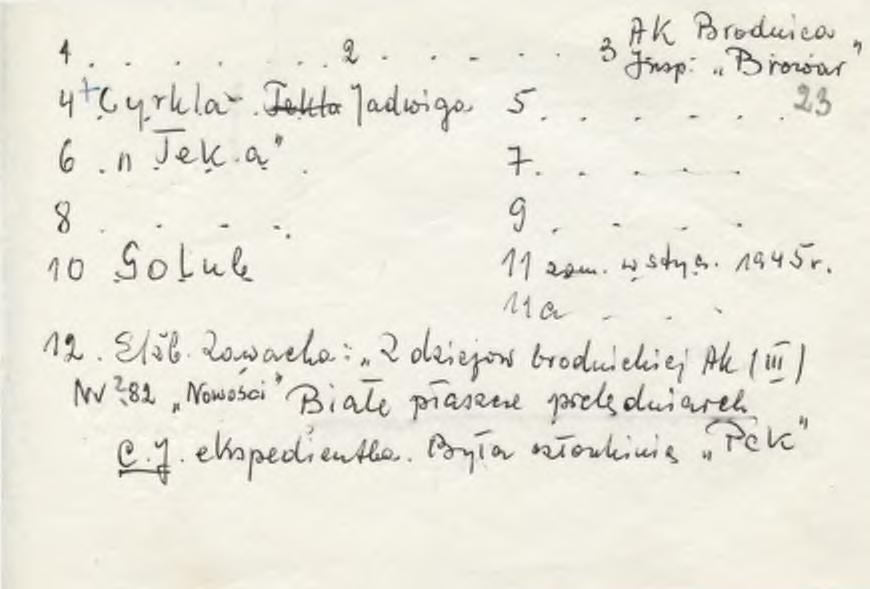 1 . . . . . . . 2 . . . . . . 3 AK Brodnica
Insp. „Browar”
4 + Cyrkla - Tekla Jadwiga 5 . . . . . . 23
6 . „Tekla” . 7 . . . . .
8 . . . . . 9 . . . . .
10 Golub 11 zam. w stycz. 1945 r.
11a . . . .
12. Elżb. Zawacka: „Z dziejów brodnickiej AK (III)
Nr 282 „Nowości” Białe płaszcze pielęgniarek
C.J. ekspedientka. Była członkinią „PCK”